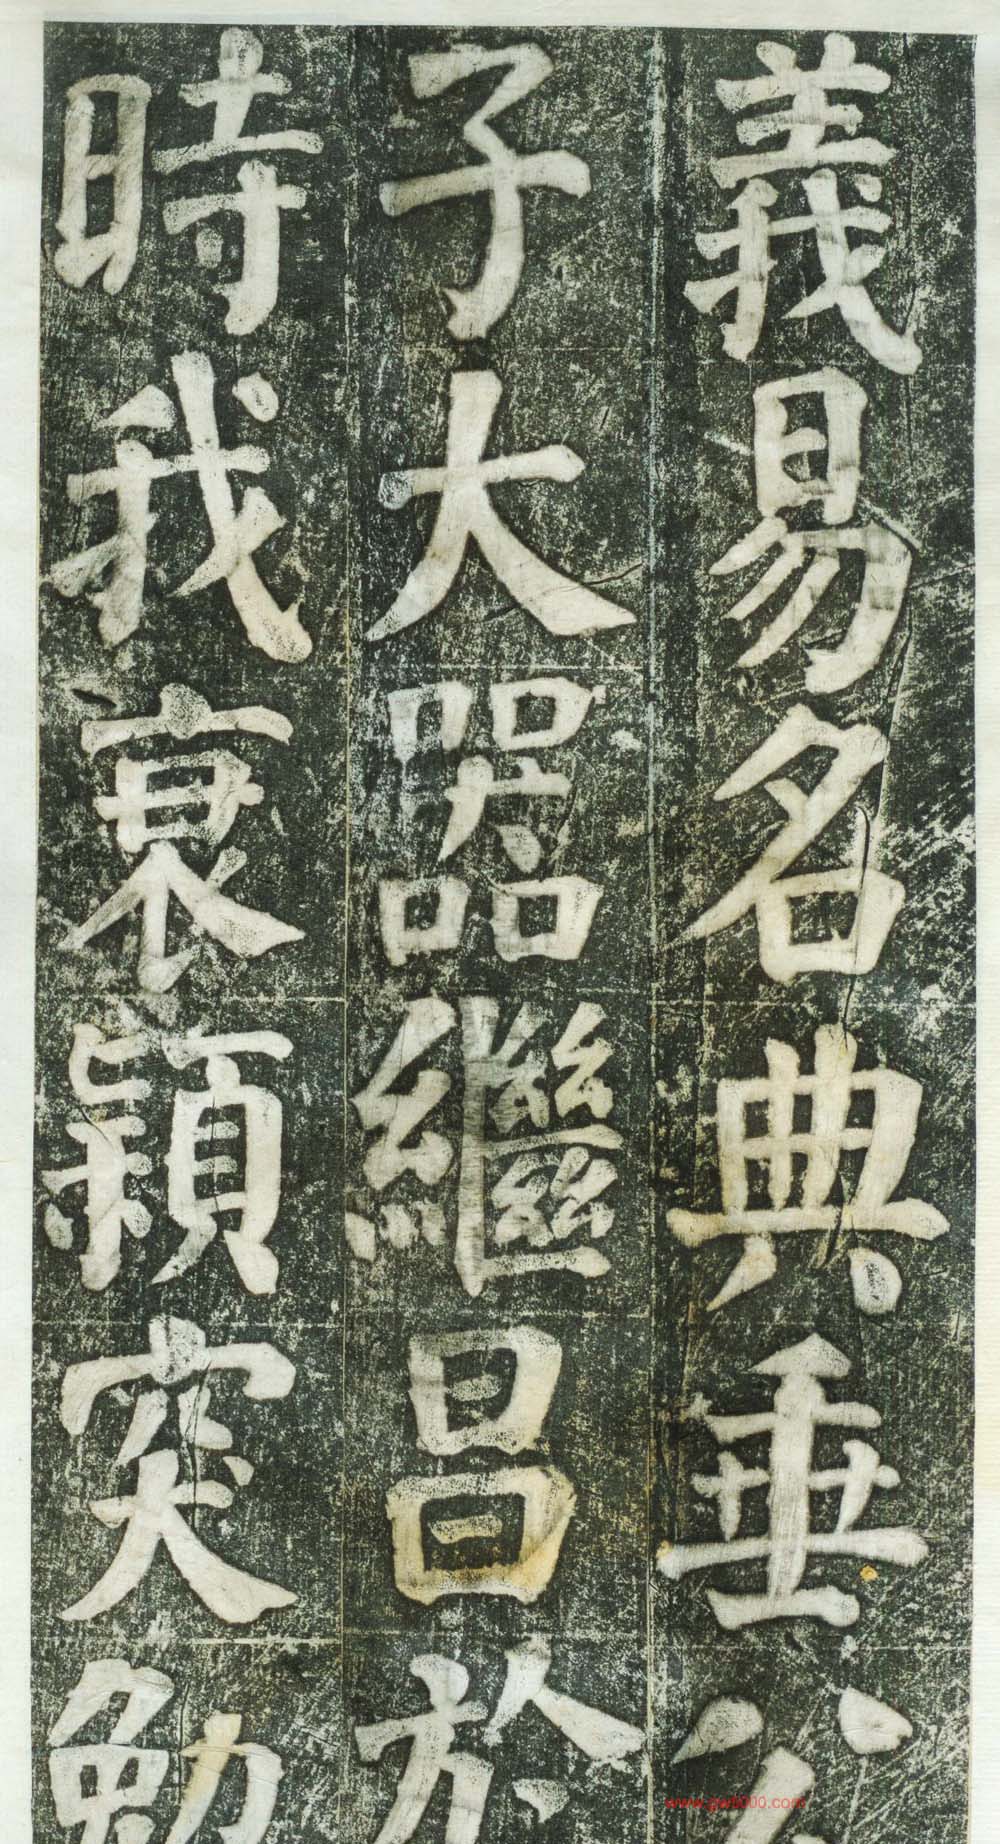 義易名典垂公
子大器繼昌於
時我衰穎突勉
www.gw8000.com